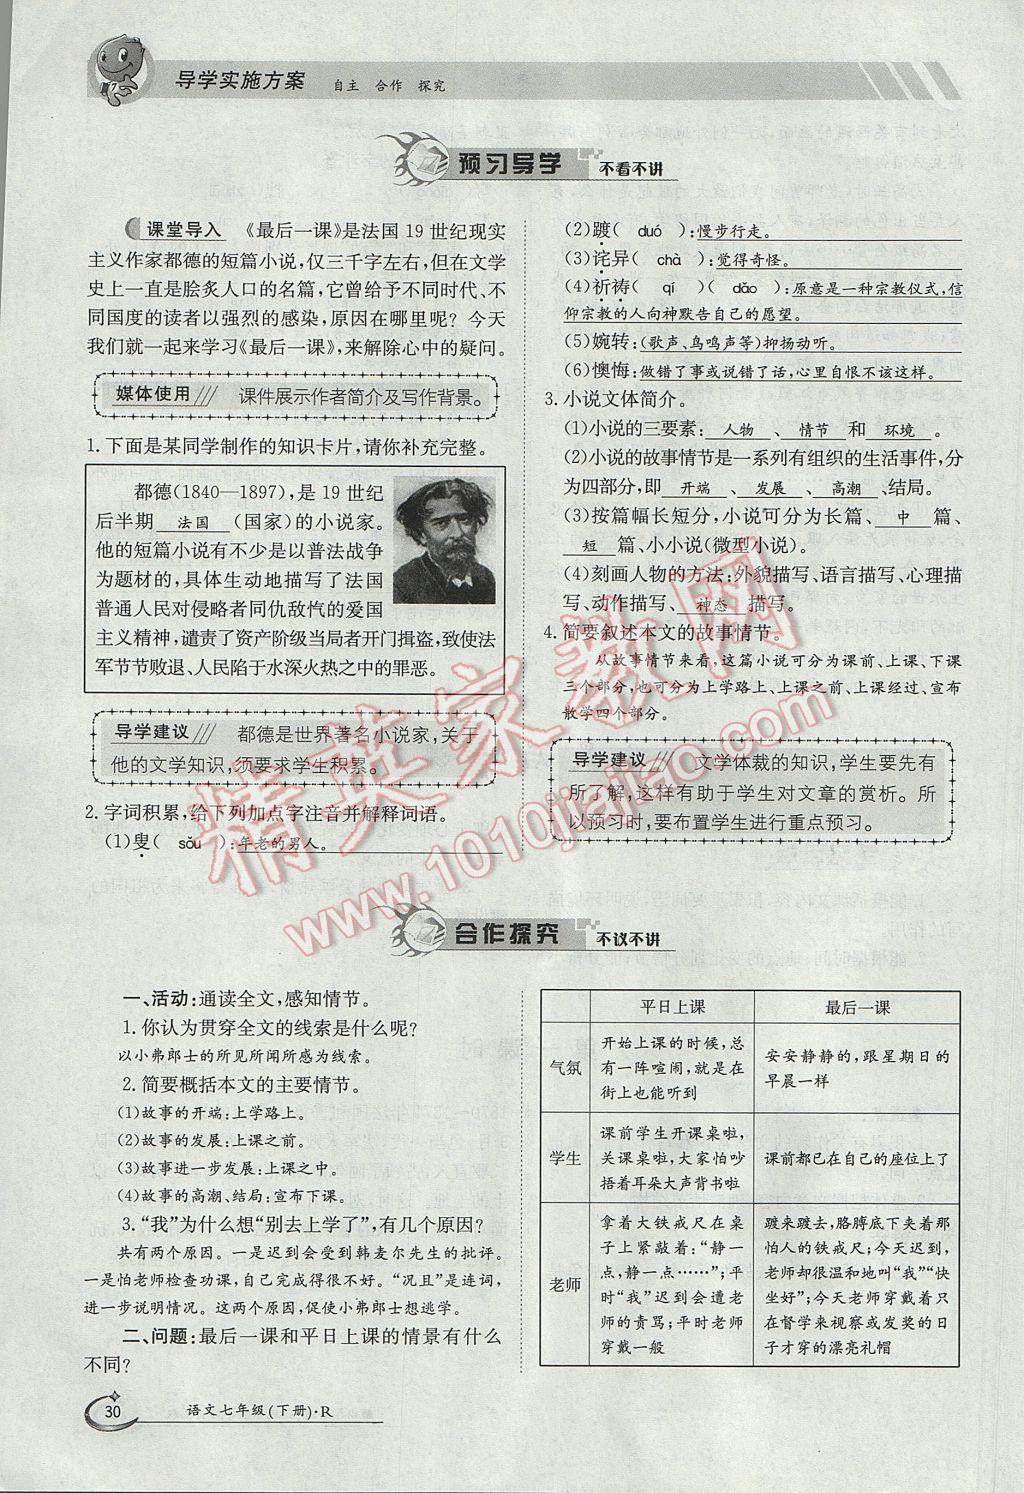 导学实施方案 自主 合作 探究
预习导学 不看不讲
课堂导入 《最后一课》是法国19世纪现实
主义作家都德的短篇小说,仅三千字左右,但在文学
史上一直是脍炙人口的名篇,它曾给予不同时代、不
不同国度的读者以强烈的感染,原因在哪里呢?今天
我们就一起来学习《最后一课》,来解除心中的疑问。
媒体使用 课件展示作者简介及写作背景。
1.下面是某同学制作的知识卡片,请你补充完整。
都德(1840—1897),是19世纪
后半期 法国 (国家)的小说家。
他的短篇小说有不少是以普法战争
为题材的,具体生动地描写了法国
普通人民对侵略者同仇敌忾的爱国
主义精神,谴责了资产阶级当局者开门揖盗,致使法
军节节败退、人民陷于水深火热之中的罪恶。
导学建议 都德是世界著名小说家,关于
他的文学知识,须要求学生积累。
2.字词积累,给下列加点字注音并解释词语。
(1)叟( sǒu ):年老的男人。
(2)踱( duó ):慢步行走。
(3)诧异( chà ):觉得奇怪。
(4)祈祷( qí )( dǎo ):原意是一种宗教仪式,信
仰宗教的人向神默告自己的愿望。
(5)婉转:(歌声、鸟鸣声等)抑扬动听。
(6)懊悔:做错了事或说错了话,心里自恨不该这样。
3.小说文体简介。
(1)小说的三要素: 人物 、 情节 和 环境 。
(2)小说的故事情节是一系列有组织的生活事件,分
为四部分,即 开端 、 发展 、 高潮 、结局。
(3)按篇幅长短分,小说可分为长篇、 中 篇、
短 篇、小小说(微型小说)。
(4)刻画人物的方法:外貌描写、语言描写、心理描
写、动作描写、 神态 描写。
4.简要叙述本文的故事情节。
从故事情节来看,这篇小说可分为课前、上课、下课
三个部分,也可分为上学路上、上课之前、上课经过、宣布
散学四个部分。
导学建议 文学体裁的知识,学生要先有
所了解,这样有助于学生对文章的赏析。所
以预习时,要布置学生进行重点预习。
合作探究 不议不讲
一、活动:通读全文,感知情节。
1.你认为贯穿全文的线索是什么呢?
以小弗郎士的所见所闻所感为线索。
2.简要概括本文的主要情节。
(1)故事的开端:上学路上。
(2)故事的发展:上课之前。
(3)故事进一步发展:上课之中。
(4)故事的高潮、结局:宣布下课。
3.“我”为什么想“别去上学了”,有几个原因?
共有两个原因。一是迟到会受到韩麦尔先生的批评。
一是怕老师检查功课,自己完成得很不好。“况且”是连词,
进一步说明情况。这两个原因,促使小弗郎士想逃学。
二、问题:最后一课和平日上课的情景有什么
不同?
平日上课 最后一课
气氛
开始上课的时候,总
有一阵喧闹,就是在
街上也能听到
安安静静的,跟星期日的
早晨一样
学生
课前学生开课桌啦,
关课桌啦,大家怕吵
捂着耳朵大声背书啦
课前都已在自己的座位上了
老师
拿着大铁戒尺在桌
子上紧敲着:“静一
点,静一点……”;平
时“我”迟到会遭老
师的责骂;平时老师
穿戴一般
踱来踱去,胳膊底下夹着那
怕人的铁戒尺;今天迟到,
老师却很温和地叫“我”“快
坐好”;今天老师穿戴着只
在督学来视察或发奖的日
子才穿的漂亮礼帽
30 语文七年级(下册)·R
精英家教网
www.1010jiajiao.com